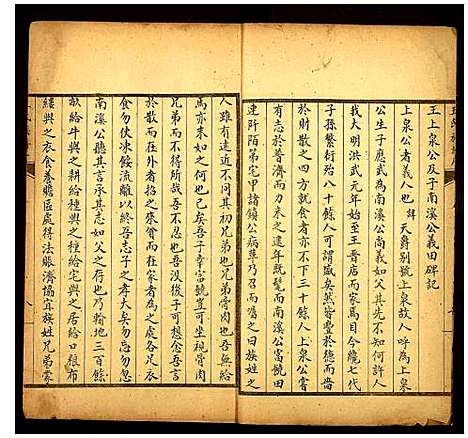 王上泉公及子南溪公義田碑記
上泉公者義八也諱天爵別號上泉故人呼為上泉
公生子應武為南溪公尚義如父之先不知何許人
我大明洪武元年始至王晉店而家焉目今纔七代
子孫繁衍殆八十餘人可謂盛矣然皆豐於德而嗇
於財散之四方就食者亦不下三十餘人南溪公嘗
有志於普濟而力未之逮年既髦而南溪公富號
連阡陌第宅甲諸鎮公病革乃召而囑之曰族姓之
人雖有遠近不同其初兄弟也骨肉也吾無給
焉亦末如之何也已矣吾子幸富饒豈可坐視骨肉
兄弟而不得所哉吾不忍也吾沒後子可想念吾言
於散而在外者招之來歸而在家者為之處各足衣
食勿使凍餒流離以終吾志子之孝大矣勿忘勿忘
南溪公聽其言承其志如父之存也乃輸地三百餘
畝給牛與之耕給種與之種給宅與之居給口粮布
縷與之衣食養贍區處得法賬濟協宜族姓兄弟蒙